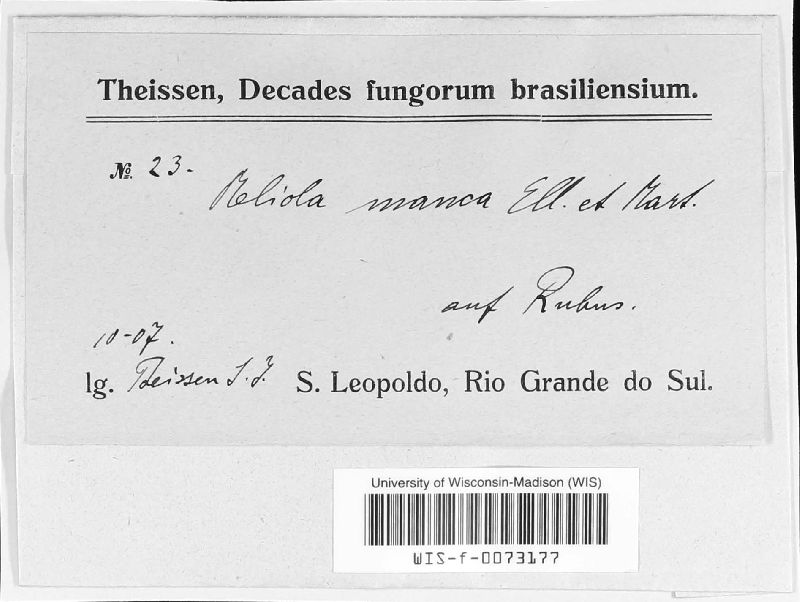 Theissen, Decades fungorum brasiliensium.
№ 23.
Meliola manca Ell. et Mart.
auf Rubus.
10-07.
lg. Theissen S. J. S. Leopoldo, Rio Grande do Sul.
University of Wisconsin-Madison (WIS)
WIS-f-0073177